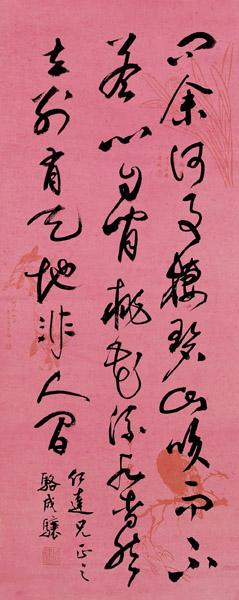 問余何事棲碧山咲而不
荅心自閒桃花流水杳然
去別有天地非人間
仁達兄正之
駱成驤